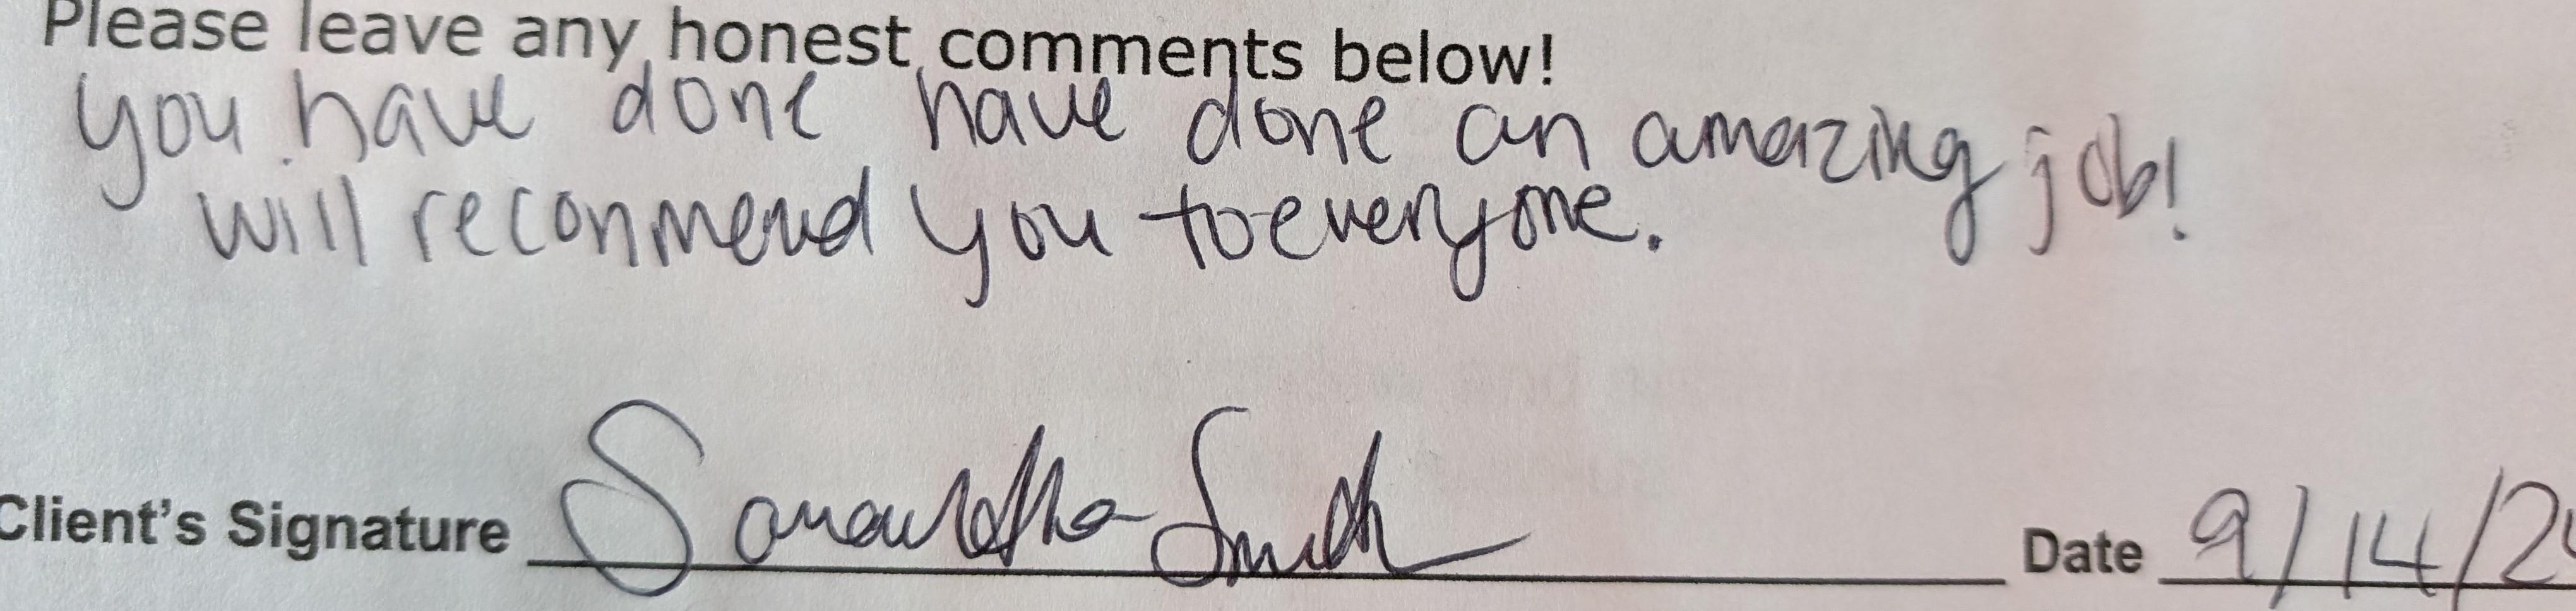 Please leave any honest comments below!
you have done have done an amazing job!
will reconmend you to everyone.
Client's Signature Samantha Smith Date 9/14/2